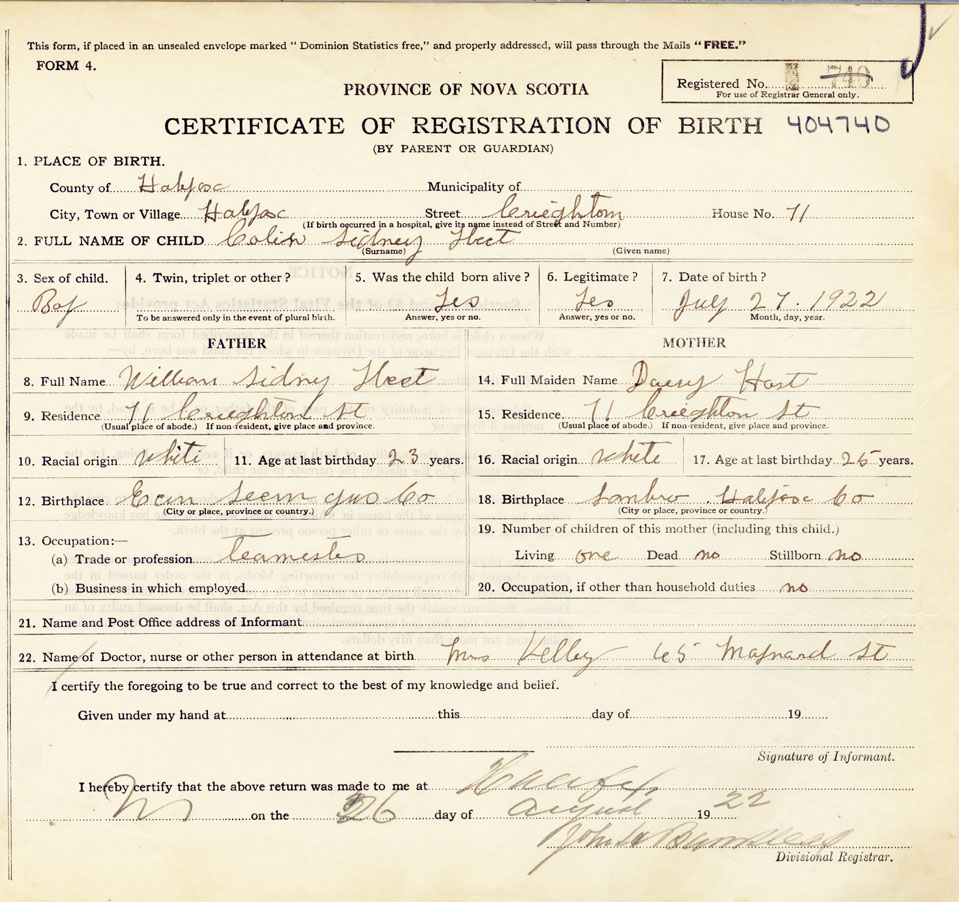 This form, if placed in an unsealed envelope marked “ Dominion Statistics free,” and properly addressed, will pass through the Mails “ FREE.”
FORM 4.
Registered No. 740
For use of Registrar General only.
PROVINCE OF NOVA SCOTIA
CERTIFICATE OF REGISTRATION OF BIRTH 404740
(BY PARENT OR GUARDIAN)
1. PLACE OF BIRTH.
County of Halifax Municipality of
City, Town or Village Halifax Street Crieghton House No. 71
(If birth occurred in a hospital, give its name instead of Street and Number)
2. FULL NAME OF CHILD Colin Sidney
(Surname) (Given name)
3. Sex of child. 4. Twin, triplet or other ? 5. Was the child born alive ? 6. Legitimate ? 7. Date of birth ?
Boy Yes Yes July 27. 1922
To be answered only in the event of plural birth. Answer, yes or no. Answer, yes or no. Month, day, year.
FATHER MOTHER
8. Full Name William Sidny 14. Full Maiden Name Hart
9. Residence 71 Crieghton St 15. Residence. 71 Crieghton St
(Usual place of abode.) If non-resident, give place and province. (Usual place of abode.) If non-resident, give place and province.
10. Racial origin white 11. Age at last birthday 23 years. 16. Racial origin white 17. Age at last birthday 25 years.
12. Birthplace Ecum Seem Co 18. Birthplace Sambro Halifax Co
(City or place, province or country.) (City or place, province or country.)
19. Number of children of this mother (including this child.)
13. Occupation:—
(a) Trade or profession teamester Living one Dead no Stillborn no
(b) Business in which employed 20. Occupation, if other than household duties no
21. Name and Post Office address of Informant
22. Name of Doctor, nurse or other person in attendance at birth Mrs Kelley 65 Maynard St
I certify the foregoing to be true and correct to the best of my knowledge and belief.
Given under my hand at this day of 19
Signature of Informant.
I hereby certify that the above return was made to me at Halifax
on the 26 day of August 1922
John
Divisional Registrar.